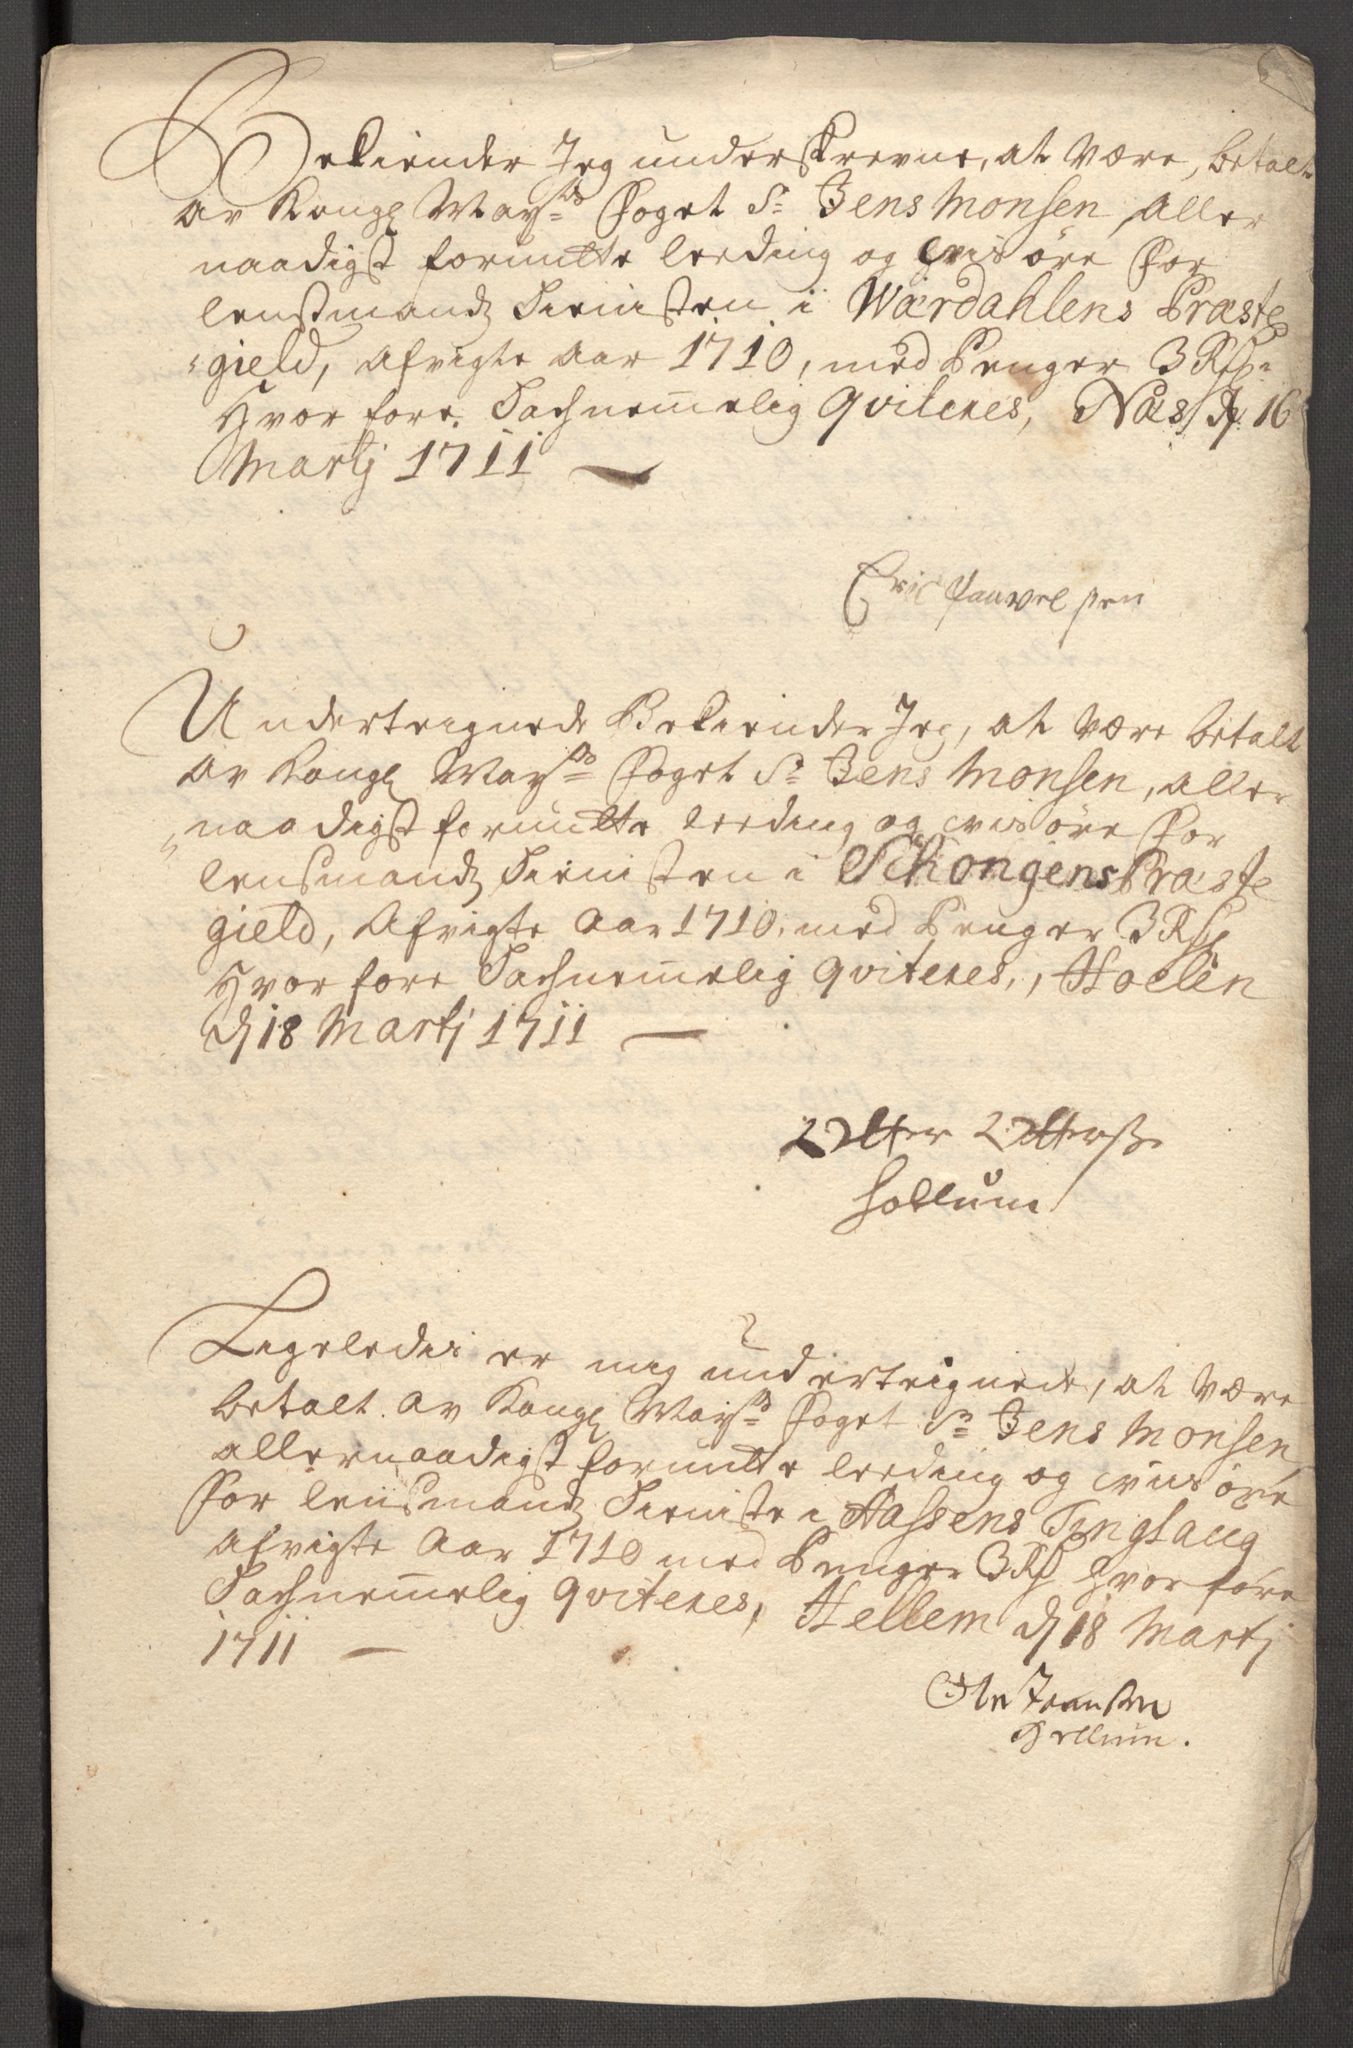 Bekiender Jeg underskrevne, at være, betalt
av Kongl May:ts Foget Sr: Jens Monsen, aller
naadigst forundte leeding og vis øre for
lenßmandz Tienisten i Wærdahlens Præste
gield, afvigte aar 1710, med Penger 3 Rdr:
Hvor fore Tachnemelig qviteres, Næs dn 16
Martj 1711
Eric Pauvelsen
Underteignede Bekiender Jeg, at være betalt
av Kongl May:ts Foget Sr: Jens Monsen, aller
naadigst forundte leeding og visøre for
lensmandz Tienisten i Schongens Præste
gield, Afvigte Aar 1710, med Penger 3 Rdr
Hvor fore Tachnemelig qviteres, Hoelen
dn 18 Martj 1711
Olle Olles:
Hollum
Ligeledis er mig undertegnede, at være
betalt av Kongl May:ts Foget Sr: Jens Monsen
allernaadigst forundte leeding og visøre
for lensmandz Tieniste i Aassens Tinglaug
afvigte Aar 1710 med Penger 3 Rdr Hvor fore
Tachnemelig qviteres, Hellem dn 18 Martj
1711
Ole Jensen
Hellum.